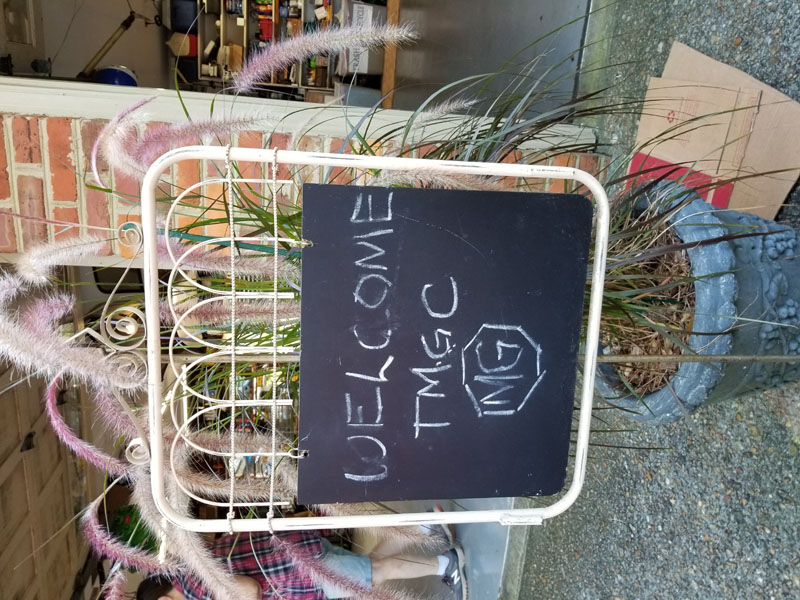 WELCOME
TMGC
MG